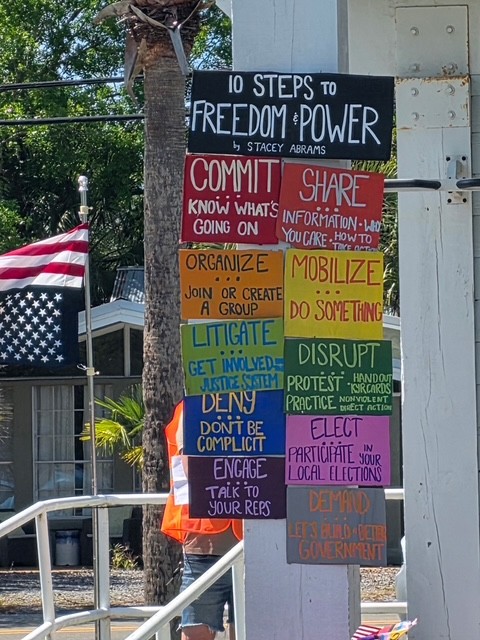 10 STEPS TO
FREEDOM & POWER
by STACEY ABRAMS
COMMIT
KNOW WHAT'S
GOING ON
SHARE
INFORMATION · WHY
YOU CARE · HOW TO
TAKE ACTION
ORGANIZE
JOIN OR CREATE
A GROUP
MOBILIZE
DO SOMETHING
LITIGATE
GET INVOLVED =
JUSTICE SYSTEM
DISRUPT
PROTEST · HANDOUT
PRACTICE NONVIOLENT
DIRECT ACTION
DENY
DON'T BE
COMPLICIT
ELECT
PARTICIPATE IN YOUR
LOCAL ELECTIONS
ENGAGE
TALK TO
YOUR REPS
DEMAND
LET'S BUILD A BETTER
GOVERNMENT